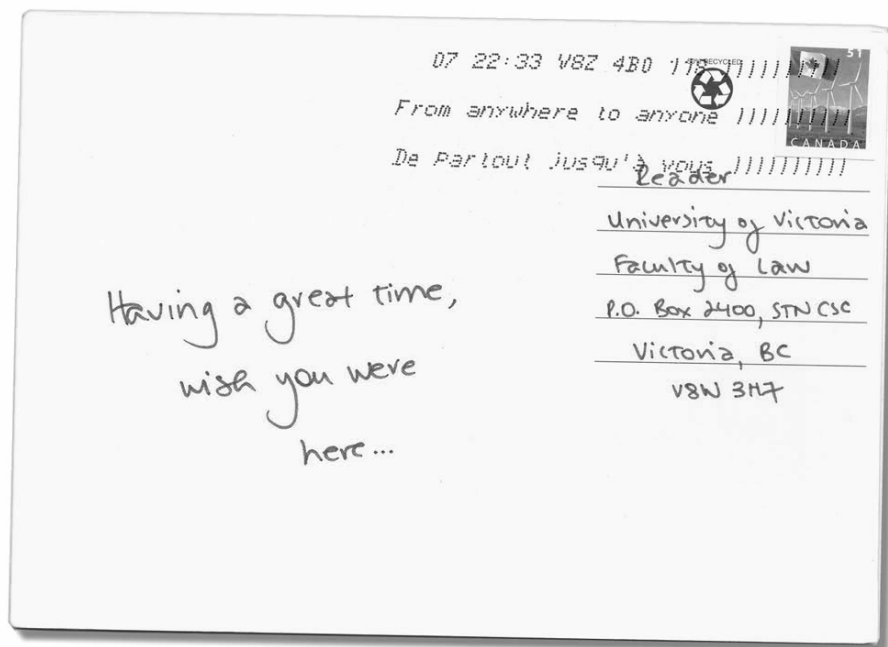 07 22:33 V8Z 4B0 118 ))))))))))
From anywhere to anyone ))))))))))
De partout jusqu'à vous ))))))))))
RECYCLED
51
CANADA
Reader
University of Victoria
Faculty of Law
P.O. Box 2400, STN CSC
Victoria, BC
V8W 3H7
Having a great time,
wish you were
here...